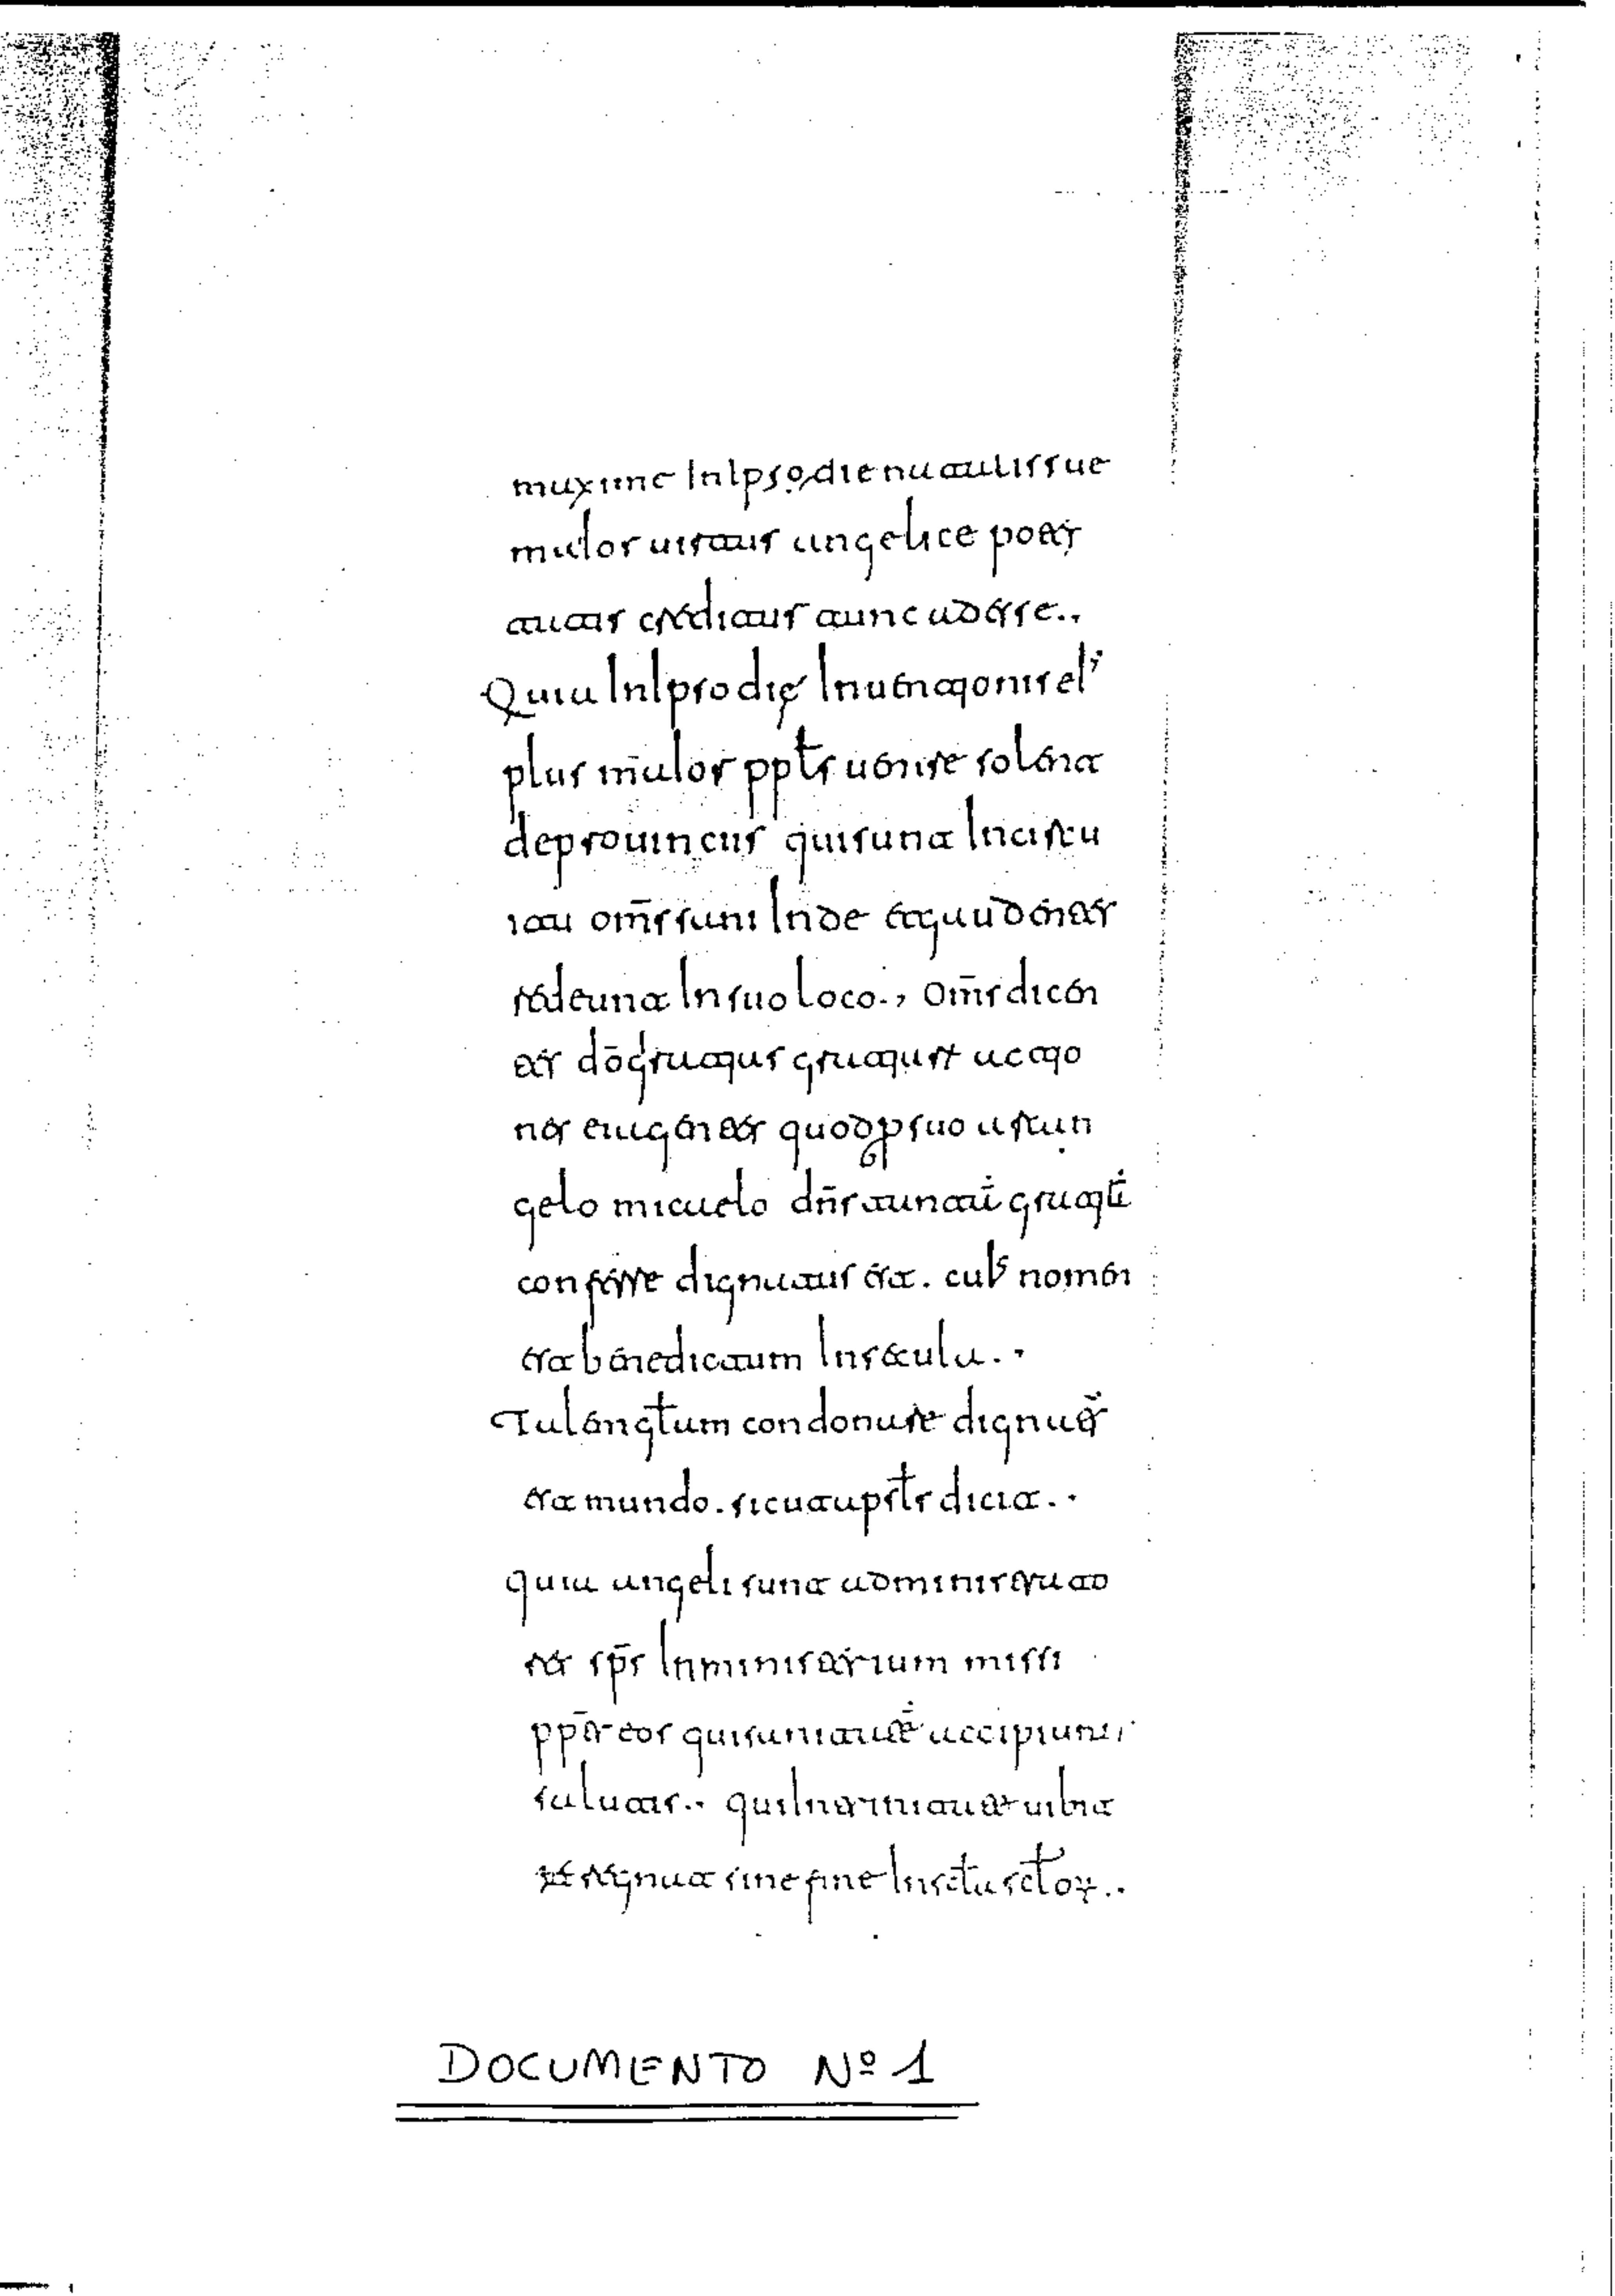 maxime In Ipso die natalis sue
m̄ulos uirtus angelice potes
tatis creditur tunc adesse.,
Quia In Ipso die Inuentjonis el'
plus m̄ulos ppl̄s uenire solent
de prouinciis qui sunt In circu
itu om̄s sani Inde et gaudentes
redeunt In suo loco., Om̄s dicen
tes dō gratjas gratjasq actjo
nes et agentes quod p suo arcan
gelo micaelo dn̄s tanta gratja
conferre dignatus est. cuI' nomen
est benedictum In secula..
condonare dignat
est mundo. sicut apstl̄s dicit..
quia angeli sunt administrato
res sp̄s In ministerium missi
pp̄tr eos qui accipiunt
salutis.. qui In eternitate uibit
et regnat sine fine In scl̄a scl̄or..
DOCUMENTO Nº 1